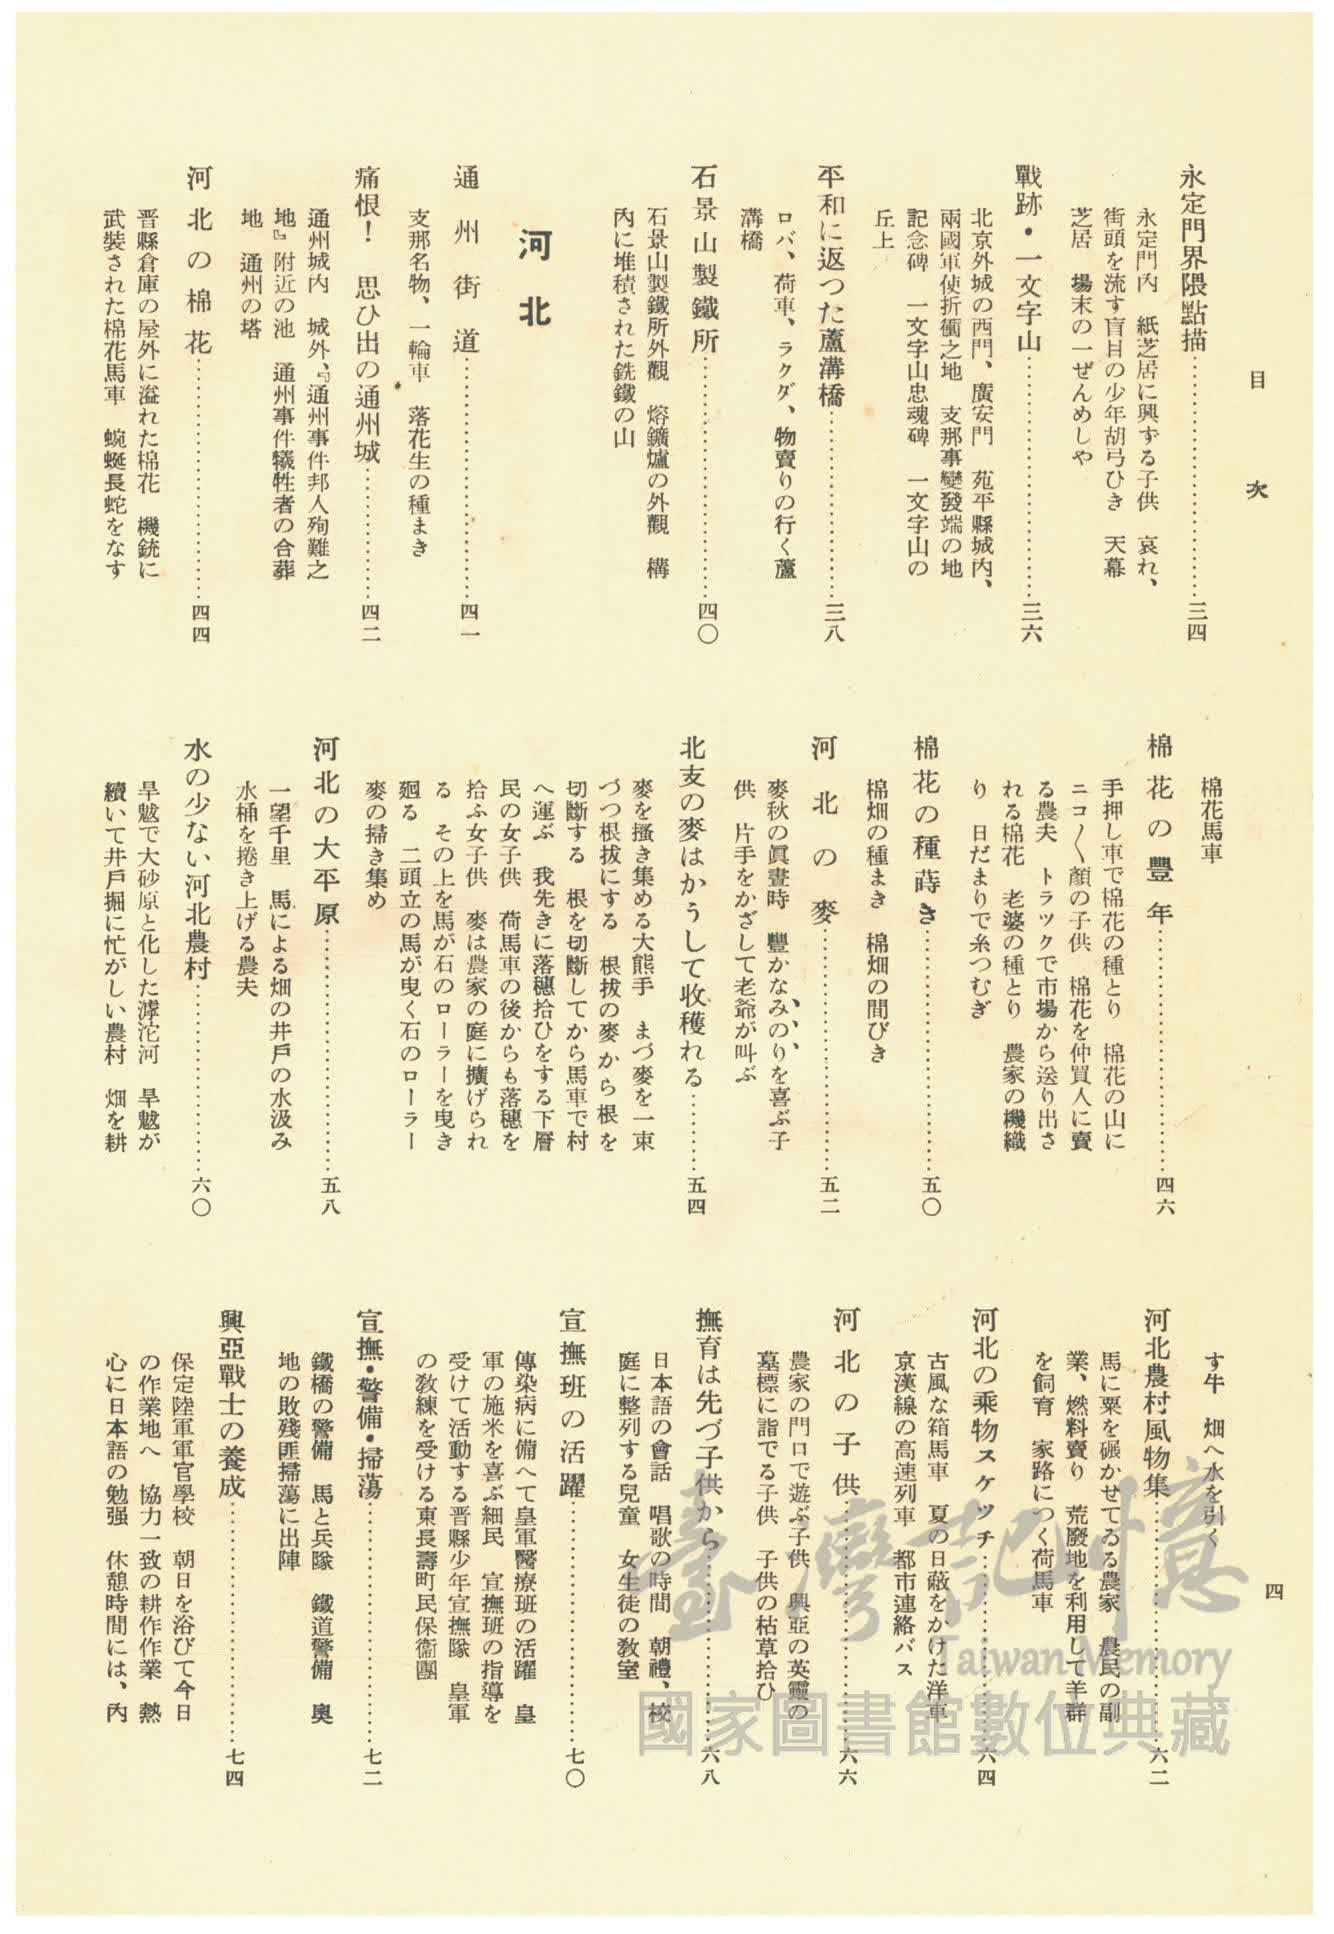 目次
永定門界隈點描…………三四
永定門內　紙芝居に興ずる子供　哀れ、
街頭を流す盲目の少年胡弓ひき　天幕
芝居　場末の一ぜんめしや
戰跡・一文字山…………三六
北京外城の西門、廣安門　苑平縣城內、
兩國軍使折衝之地　支那事變發端の地
記念碑　一文字山忠魂碑　一文字山の
丘上
平和に返つた蘆溝橋…………三八
ロバ、荷車、ラクダ、物賣りの行く蘆
溝橋
石景山製鐵所…………四〇
石景山製鐵所外觀　熔鑛爐の外觀　構
內に堆積された銑鐵の山
河北
通州街道…………四一
支那名物、一輪車　落花生の種まき
痛恨！　思ひ出の通州城…………四二
通州城內　城外、『通州事件邦人殉難之
地』附近の池　通州事件犧牲者の合葬
地　通州の塔
河北の棉花…………四四
晋縣倉庫の屋外に溢れた棉花　機銃に
武裝された棉花馬車　蜿蜒長蛇をなす
棉花馬車
棉花の豐年…………四六
手押し車で棉花の種とり　棉花の山に
ニコ〳〵顏の子供　棉花を仲買人に賣
る農夫　トラツクで市場から送り出さ
れる棉花　老婆の種とり　農家の機織
り　日だまりで糸つむぎ
棉花の種蒔き…………五〇
棉畑の種まき　棉畑の間びき
河北の麥…………五二
麥秋の眞晝時　豐かなみのりを喜ぶ子
供　片手をかざして老爺が叫ぶ
北支の麥はかうして收穫れる…………五四
麥を搔き集める大熊手　まづ麥を一束
づつ根拔にする　根拔の麥から根を
切斷する　根を切斷してから馬車で村
へ運ぶ　我先きに落穗拾ひをする下層
民の女子供　荷馬車の後からも落穗を
拾ふ女子供　麥は農家の庭に擴げられ
る　その上を馬が石のローラーを曳き
廻る　二頭立の馬が曳く石のローラー
麥の掃き集め
河北の大平原…………五八
一望千里　馬による畑の井戶の水汲み
水桶を捲き上げる農夫
水の少ない河北農村…………六〇
旱魃で大砂原と化した滹沱河　旱魃が
續いて井戶掘に忙がしい農村　畑を耕
す牛　畑へ水を引く
河北農村風物集…………六二
馬に粟を碾かせてゐる農家　農民の副
業、燃料賣り　荒廢地を利用して羊群
を飼育　家路につく荷馬車
河北の乘物スケツチ…………六四
古風な箱馬車　夏の日蔽をかけた洋車
京漢線の高速列車　都市連絡バス
河北の子供…………六六
農家の門口で遊ぶ子供　興亞の英靈の
墓標に詣でる子供　子供の枯草拾ひ
撫育は先づ子供から…………六八
日本語の會話　唱歌の時間　朝禮、校
庭に整列する兒童　女生徒の教室
宣撫班の活躍…………七〇
傳染病に備へて皇軍醫療班の活躍　皇
軍の施米を喜ぶ細民　宣撫班の指導を
受けて活動する晋縣少年宣撫隊　皇軍
の敎練を受ける東長壽町民保衞團
宣撫・警備・掃蕩…………七二
鐵橋の警備　馬と兵隊　鐵道警備　奧
地の敗殘匪掃蕩に出陣
興亞戰士の養成…………七四
保定陸軍軍官學校　朝日を浴びて今日
の作業地へ　協力一致の耕作作業　熱
心に日本語の勉强　休憩時間には、內
四
臺灣記憶
Taiwan Memory
國家圖書館數位典藏